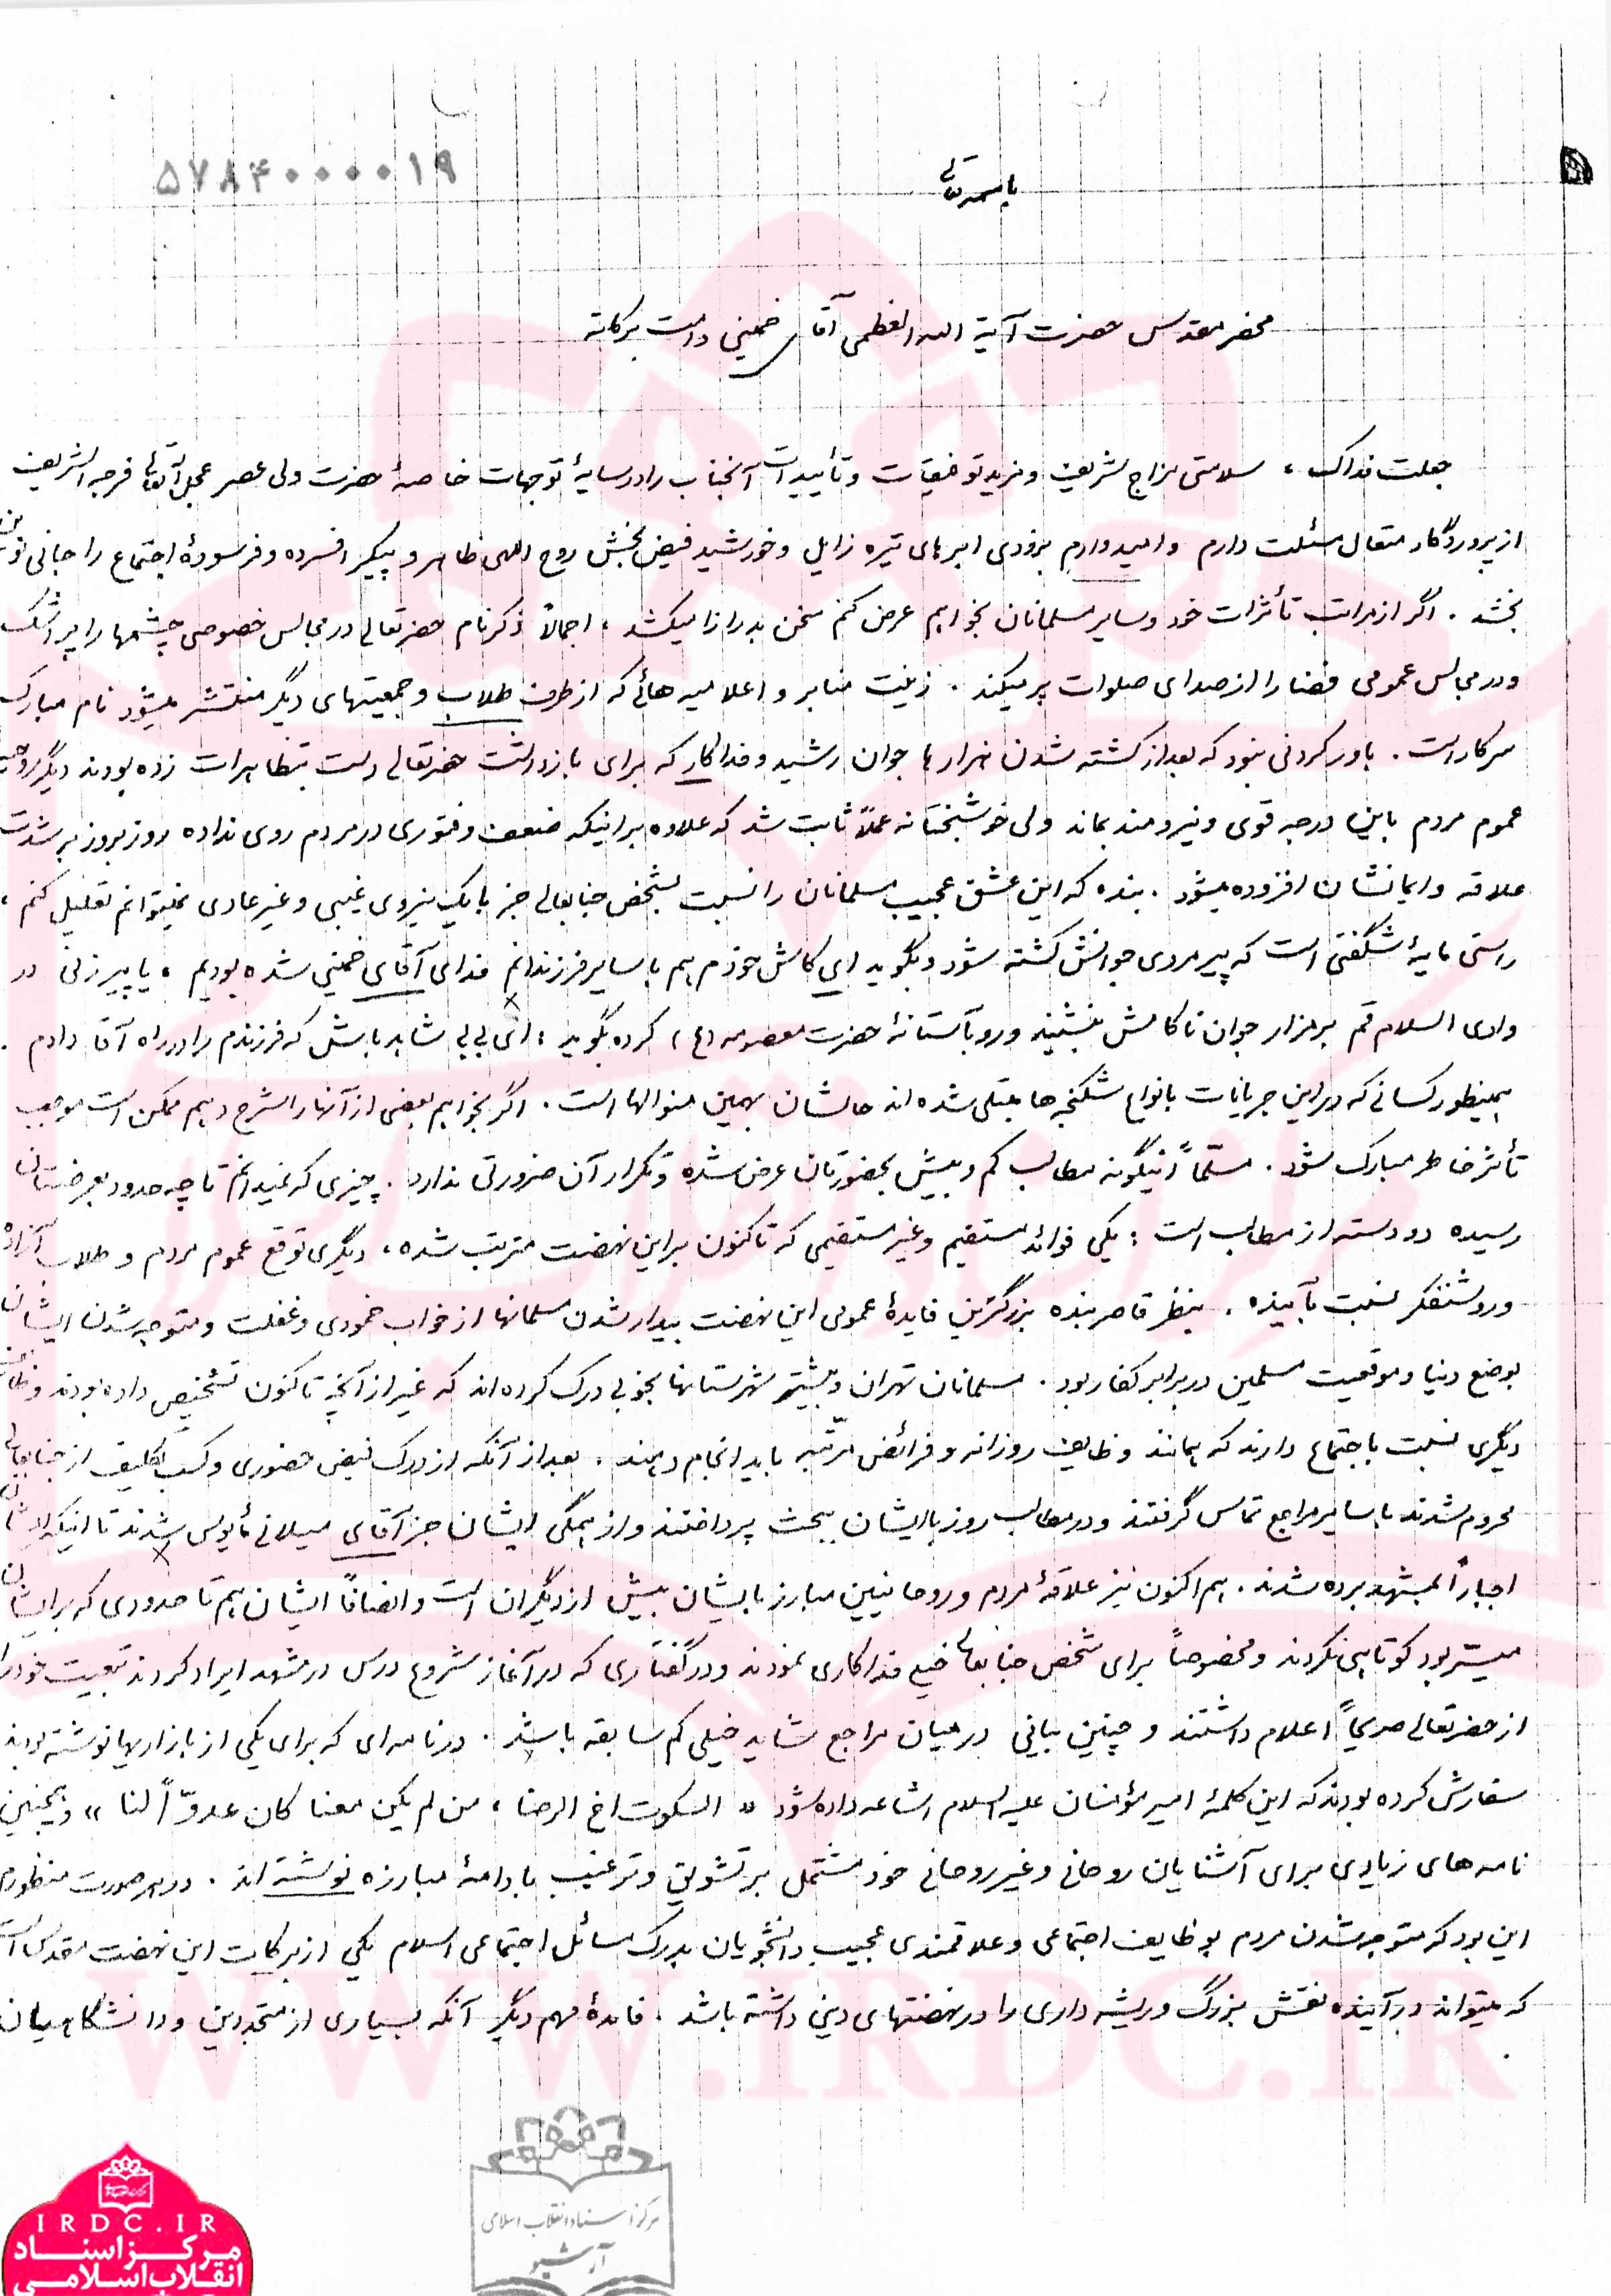 ۵۷۸۴۰۰۰۰۱۹
باسمه تعالی
محضر مقدس حضرت آیة الله العظمی آقای خمینی دامت برکاته
جعلت فداک ، سلامتی مزاج شریف و مزید توفیقات و تأییدات آنجناب را در سایهٔ توجهات خاصهٔ حضرت ولی عصر عجل الله تعالی فرجه الشریف
از پروردگار متعال مسئلت دارم و امیدوارم بزودی ابرهای تیره زایل و خورشید فیض بخش روح اللهی ظاهر و پیکر افسرده و فرسودهٔ اجتماع را جانی نوین
بخشد . اگر از مراتب تأثرات خود و سایر مسلمانان بخواهم عرض کنم سخن بدرازا میکشد ، اجمالاً ذکر نام حضرتعالی در مجالس خصوصی چشمها را پر اشک
و در مجالس عمومی فضا را از صدای صلوات پر میکند . زینت منابر و اعلامیه هائی که از طرف طلاب و جمعیتهای دیگر منتشر میشود نام مبارک
سرکار است . باور کردنی نبود که بعد از کشته شدن هزارها جوان رشید و فداکار که برای بازداشت حضرتعالی دست بتظاهرات زده بودند دیگر روحیه
عموم مردم باین درجه قوی و نیرومند بماند ولی خوشبختانه عملاً ثابت شد که علاوه بر اینکه ضعف و فتوری در مردم روی نداده روز بروز بر شدت
علاقه و ایمانشان افزوده میشود . بنده که این عشق عجیب مسلمانان را نسبت بشخص جنابعالی جز بایک نیروی غیبی و غیر عادی نمیتوانم تعلیل کنم ،
راستی مایهٔ شگفتی است که پیرمردی جوانش کشته شود و بگوید ای کاش خودم هم با سایر فرزندانم فدای آقای خمینی شده بودیم ، یا پیرزنی در
وادی السلام قم بر مزار جوان ناکامش بنشیند و رو بآستانهٔ حضرت معصومه (ع) کرده بگوید : ای بی بی شاهد باش که فرزندم را در راه آقا دادم .
همینطور کسانی که در این جریانات بانواع شکنجه ها مبتلی شده اند حالشان بهمین منوالها است . اگر بخواهم بعضی از آنها را شرح دهم ممکن است موجب
تأثر خاطر مبارک شود . مسلّماً اینگونه مطالب کم و بیش بحضورتان عرض شده و تکرار آن ضرورتی ندارد . چیزی که نمیدانم تا چه حدود بعرضتان
رسیده دو دسته از مطالب است : یکی فوائد مستقیم و غیر مستقیمی که تاکنون بر این نهضت مترتب شده ، دیگری توقع عموم مردم و طلاب آزاده
و روشنفکر نسبت بآینده . بنظر قاصر بنده بزرگترین فایدهٔ عمومی این نهضت بیدار شدن مسلمانها از خواب خمودی و غفلت و متوجه شدن ایشان
بوضع دنیا و موقعیت مسلمین در برابر کفار بود . مسلمانان تهران و بیشتر شهرستانها بخوبی درک کرده اند که غیر از آنچه تاکنون تشخیص داده بودند وظائف
دیگری نسبت باجتماع دارند که بمانند وظایف روزانه و فرائض مرتّبه باید انجام دهند . بعد از آنکه از درک فیض حضوری و کسب تکلیف از جنابعالی
محروم شدند با سایر مراجع تماس گرفتند و در مطالب روز با ایشان ببحث پرداختند و از همگی ایشان جز آقای میلانی مأیوس شدند تا اینکه ایشان
اجباراً بمشهد برده شدند . هم اکنون نیز علاقهٔ مردم و روحانیین مبارز بایشان بیش از دیگران است و انصافاً ایشان هم تا حدودی که برایشان
میسّر بود کوتاهی نکردند و مخصوصاً برای شخص جنابعالی خیلی فداکاری نمودند و در گفتاری که در آغاز شروع درس در مشهد ایراد کردند تبعیت خود را
از حضرتعالی صریحاً اعلام داشتند و چنین بیانی در میان مراجع شاید خیلی کم سابقه باشد . در نامه ای که برای یکی از بازاریها نوشته بودند
سفارش کرده بودند که این کلمهٔ امیر مؤمنان علیه السلام اشاعه داده شود « السکوت اخ الرضا ، من لم یکن معنا کان عدوّاً لنا » و همچنین
نامه های زیادی برای آشنایان روحانی و غیر روحانی خود مشتمل بر تشویق و ترغیب بادامهٔ مبارزه نوشته اند . در هر صورت منظورم
این بود که متوجه شدن مردم بوظایف اجتماعی و علاقمندی عجیب دانشجویان بدرک مسائل اجتماعی اسلام یکی از برکات این نهضت مقدس است
که میتواند در آینده نقش بزرگ و ریشه داری را در نهضتهای دینی داشته باشد . فائدهٔ مهم دیگر آنکه بسیاری از متجددین و دانشگاهیان
WWW.IRDC.IR
مرکز اسناد انقلاب اسلامی
آرشیو
IRDC.IR
مرکز اسناد
انقلاب اسلامی